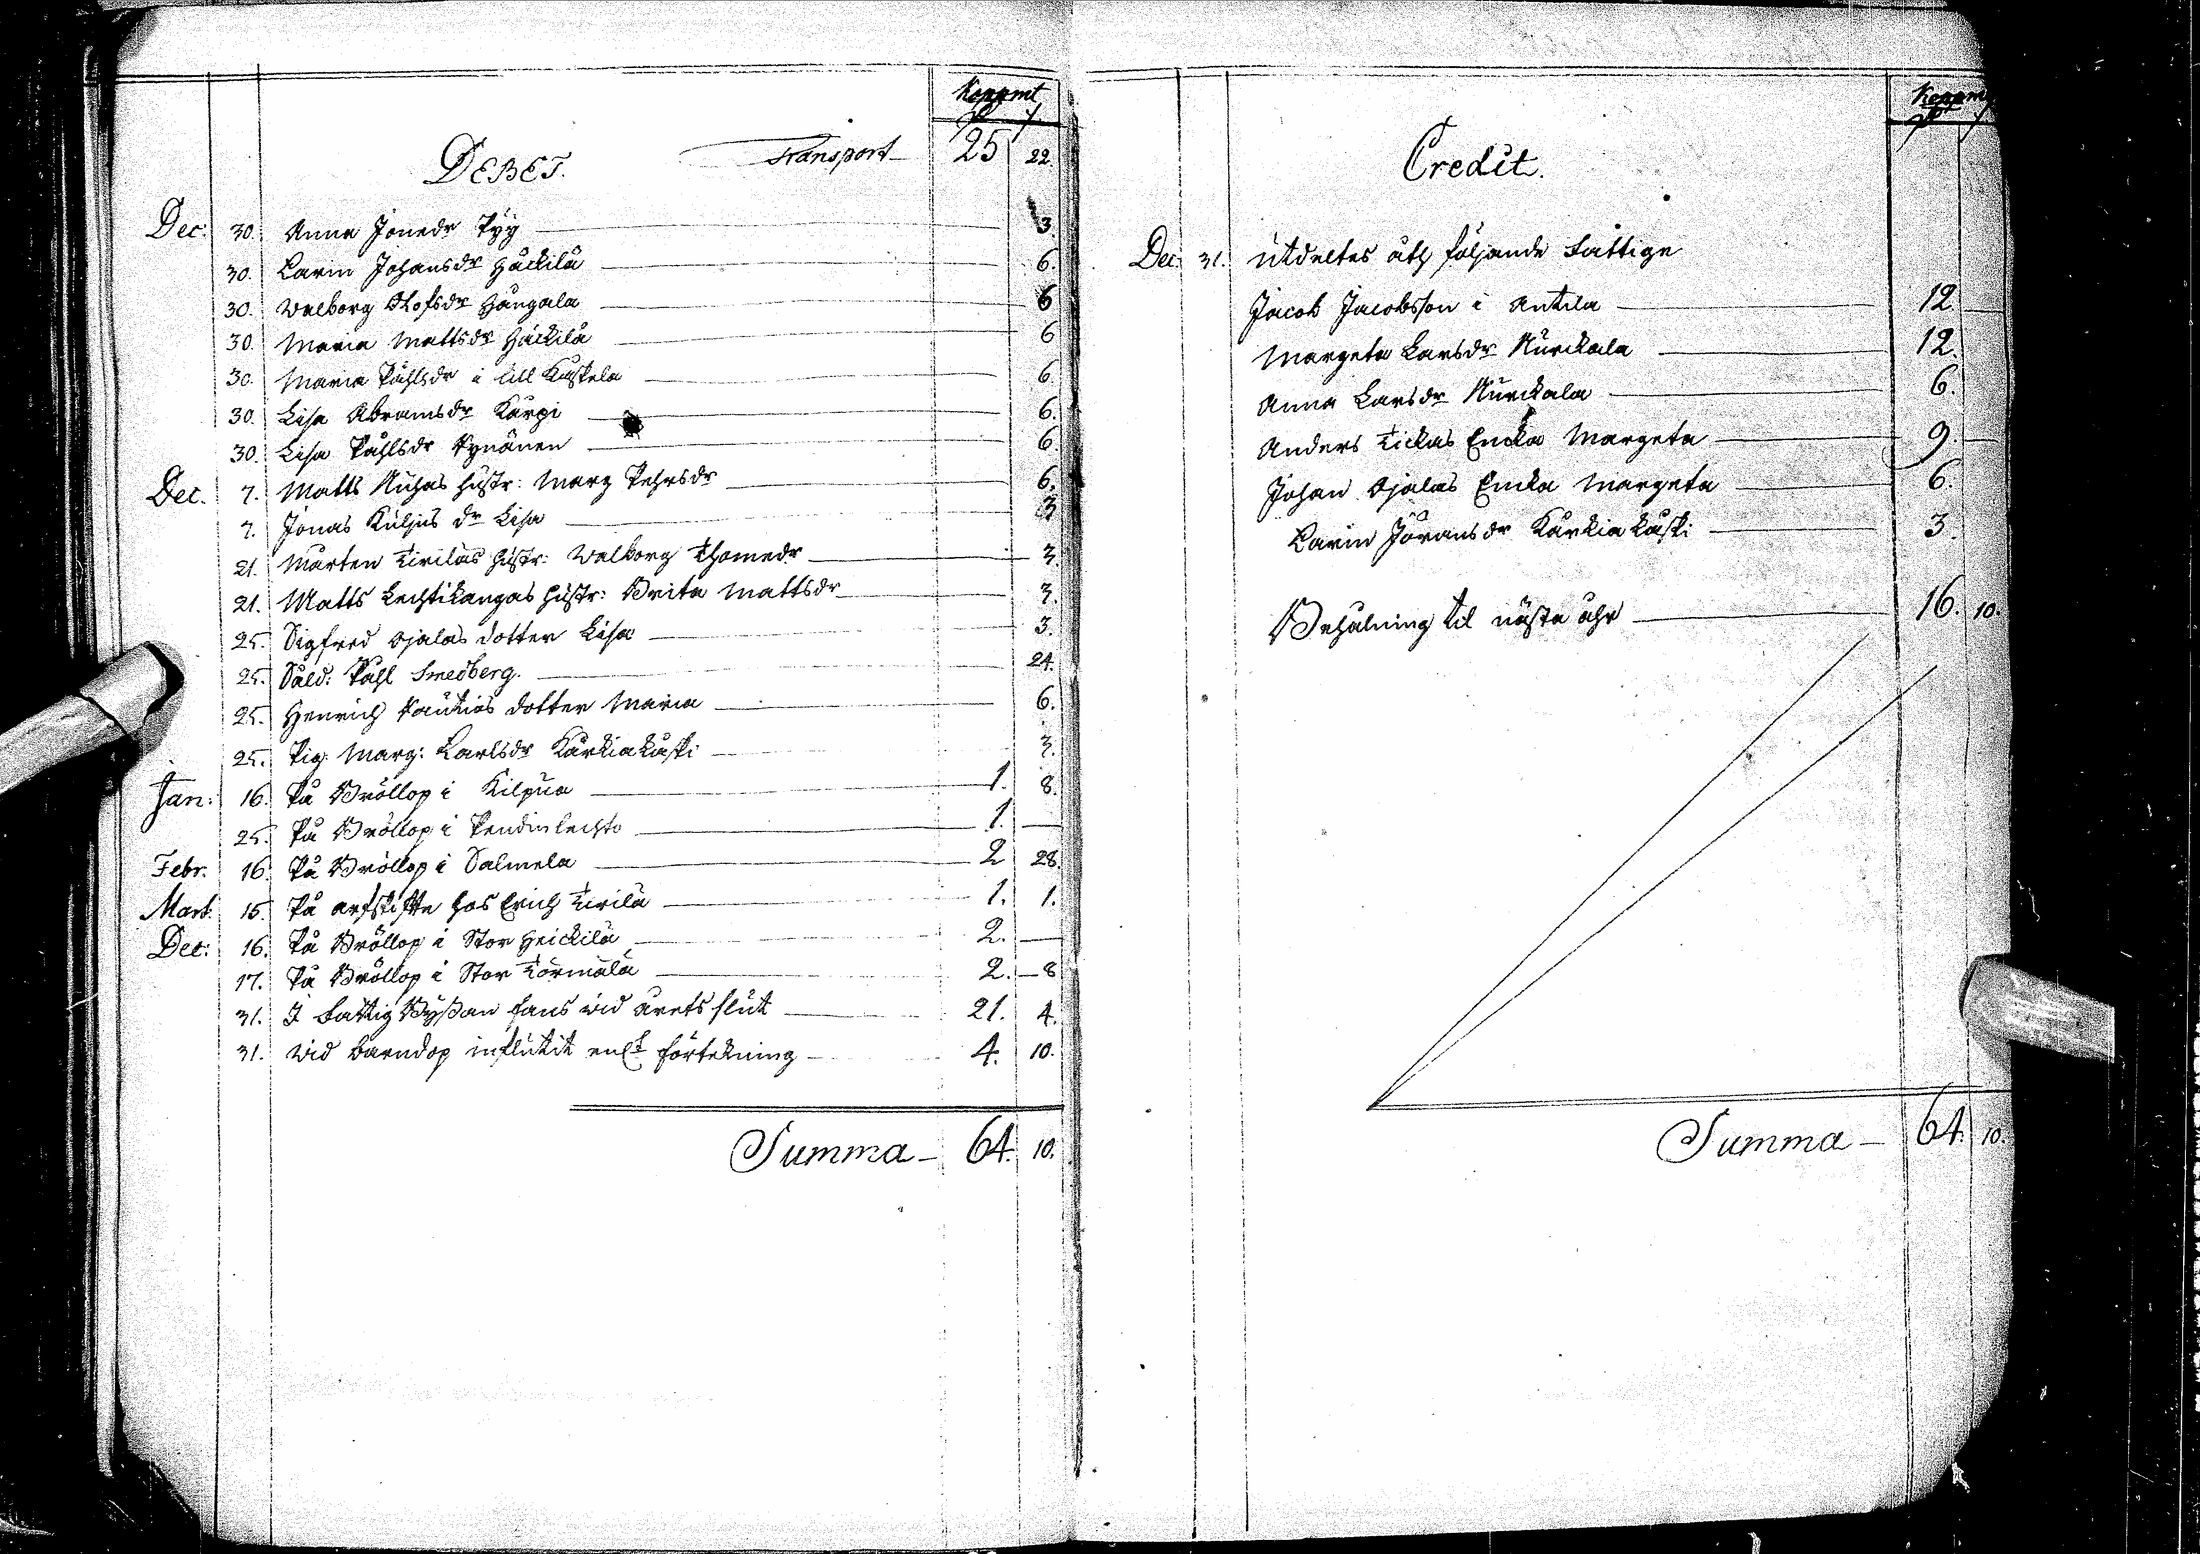 Koppmt
DEBET. Transport 25 22.
Dec: 30. Anna Jönsdr Pyy 3.
30. Carin Johansdr Häckilä 6.
30. Walborg Olofsdr Hangala 6
30. Maria Mattsdr Häickilä 6
30. Maria Påhlsdr i Lill Kaskela 6.
30. Lisa Abramsdr Karpi 6.
30. Lisa Påhlsdr Kynänen 6.
Dec. 7. Matts Ruhas hustr: Marg Pehrsdr 6.
7. Jonas Kuljus dr Lisa 3
21. Mårten Tirilas hustr: Walborg Thomedr 3.
21. Matts Lechtikangas hustr: Brita Mattsdr 3.
25. Sigfred Ojalas dotter Lisa 3.
25. Sald: Påhl Smedberg. 24.
25. Henrich Paukios dotter Maria 6.
25. Pig: Marg: Carlsdr Karkiakaski 3.
Jan: 16. På Bröllop i Kilpua 1. 8.
25. På Bröllop i Pendinlechto 1. —
Febr. 16. På Bröllop i Salmela 2 28
Mart: 15. På arfskifte hos Erich Tirilä 1. 1.
Dec: 16. På Bröllop i Stor Heickilä 2. —
17. På Bröllop i Stor Törmälä 2. — 8
31. I Fattig Byssan fans wid årets slut 21. 4.
31. Wid barndop influtit enl:t förtekning 4. 10.
Summa 64. 10.
Koppm
Credit.
Dec 31. Utdeltes åth följande Fattige
Jacob Jacobsson i Antila 12
Margeta Larsdr Kurckala 12.
Anna Larsdr Kurckala 6.
Anders Tickas Encka Margeta 9.
Johan Ojalas Encka Margeta 6.
Carin Jöransdr Karkiakaski 3.
Behålning til nästa åhr 16. 10.
Summa 64. 10.